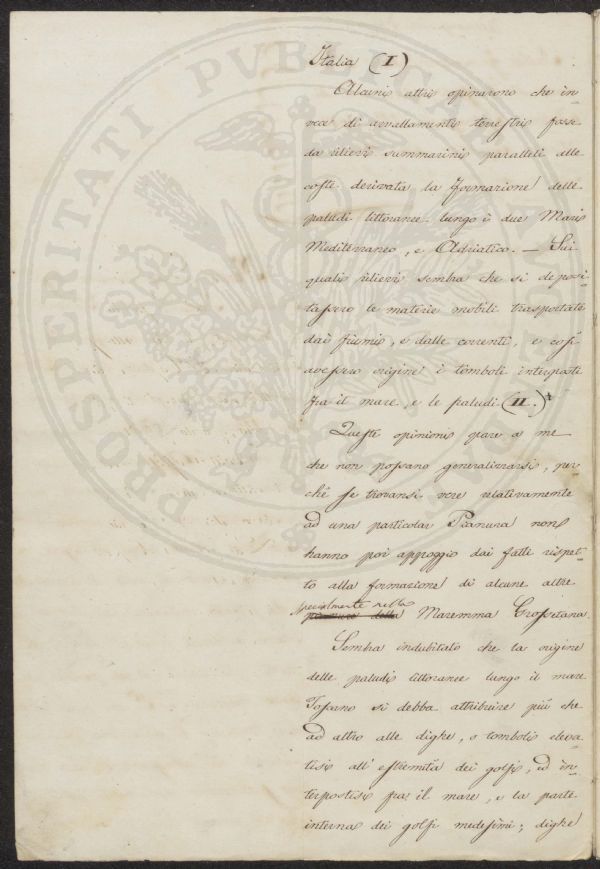 Italia (I)
Alcuni altri opinarono che in-
vece di avvallamenti terrestri fosse
da rilievi summarini paralleli alle
coste derivata la formazione delle
paludi littoranee lungo i due Mari
Mediterraneo, e Adriatico. — Sui
quali rilievi sembra che si deposi-
tassero le materie mobili trasportate
dai fiumi, e dalle correnti, e così
avessero origine i tomboli interposti
fra il mare, e le paludi (II.)
Queste opinioni pare a me
che non possano generalizzarsi, per
chè se trovansi vere relativamente
ad una particolar Pianura non
hanno poi appoggio dai fatti rispet-
to alla formazione di alcune altre
specialmente nella
pianure della Maremma Grossetana.
Sembra indubitato che la origine
delle paludi littoranee lungo il mare
Toscano si debba attribuire più che
ad altro alle dighe, o tomboli eleva-
tisi all'estremità dei golfi, ed in-
terpostisi fra il mare, e la parte
interna dei golfi medesimi; dighe
PROSPERITATI PVBLICAE